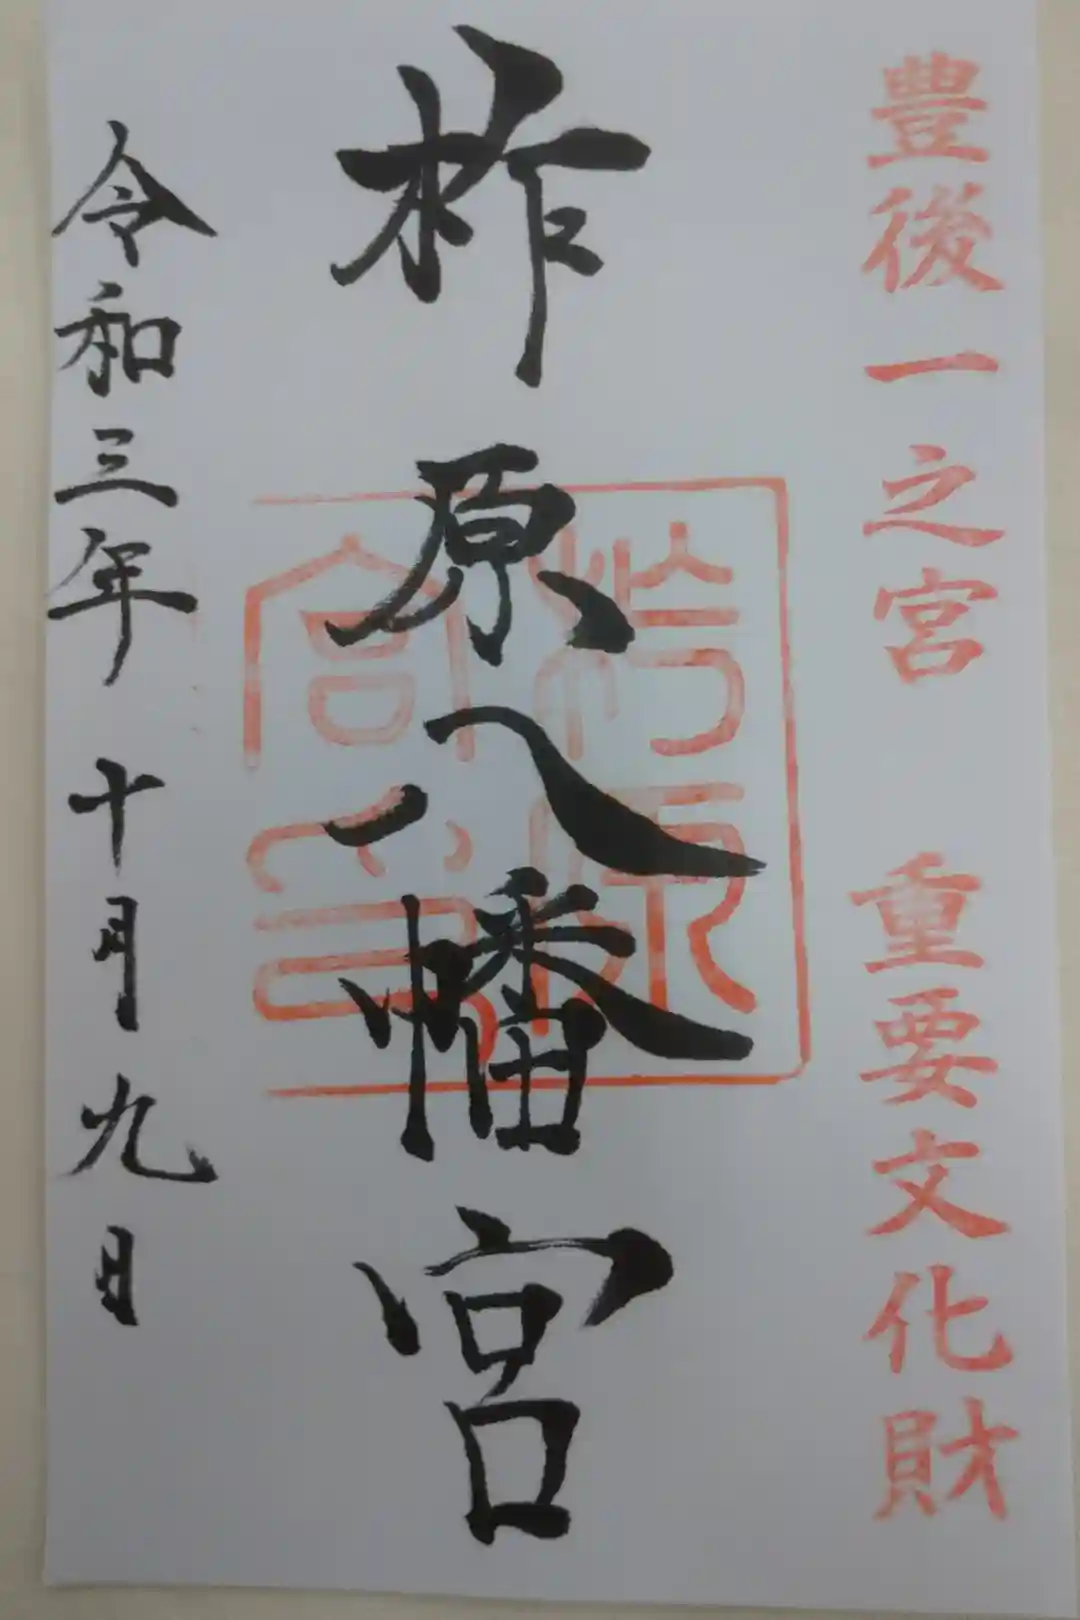 豊後一之宮 重要文化財
柞原八幡宮
令和三年十月九日